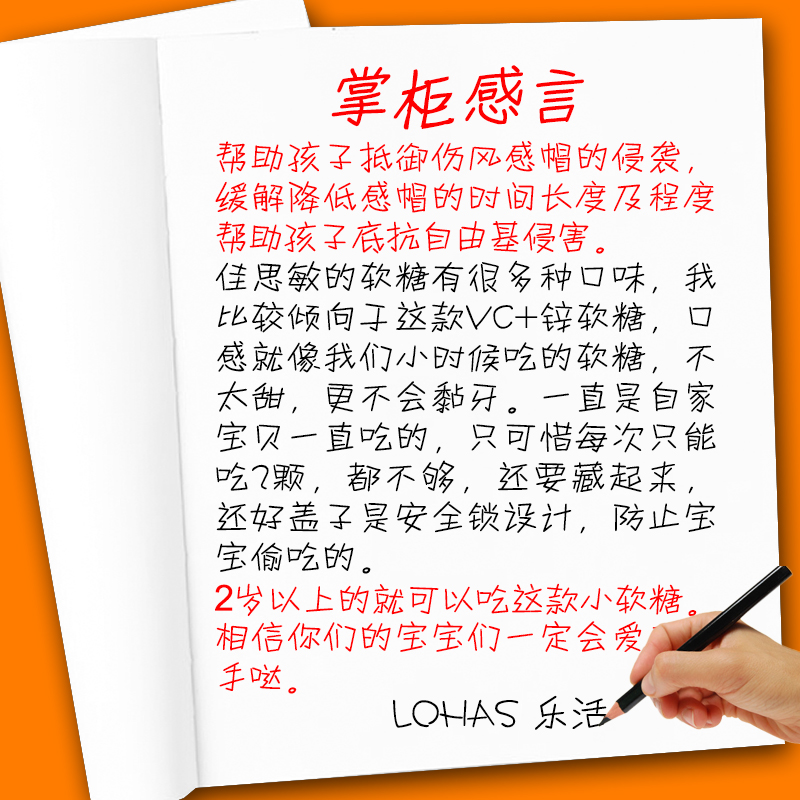 掌柜感言
帮助孩子抵御伤风感帽的侵袭，
缓解降低感帽的时间长度及程度
帮助孩子底抗自由基侵害。
佳思敏的软糖有很多种口味，我
比较倾向于这款VC+锌软糖，口
感就像我们小时候吃的软糖，不
太甜，更不会黏牙。一直是自家
宝贝一直吃的，只可惜每次只能
吃2颗，都不够，还要藏起来，
还好盖子是安全锁设计，防止宝
宝偷吃的。
2岁以上的就可以吃这款小软糖。
相信你们的宝宝们一定会爱
手哒。
LOHAS 乐活